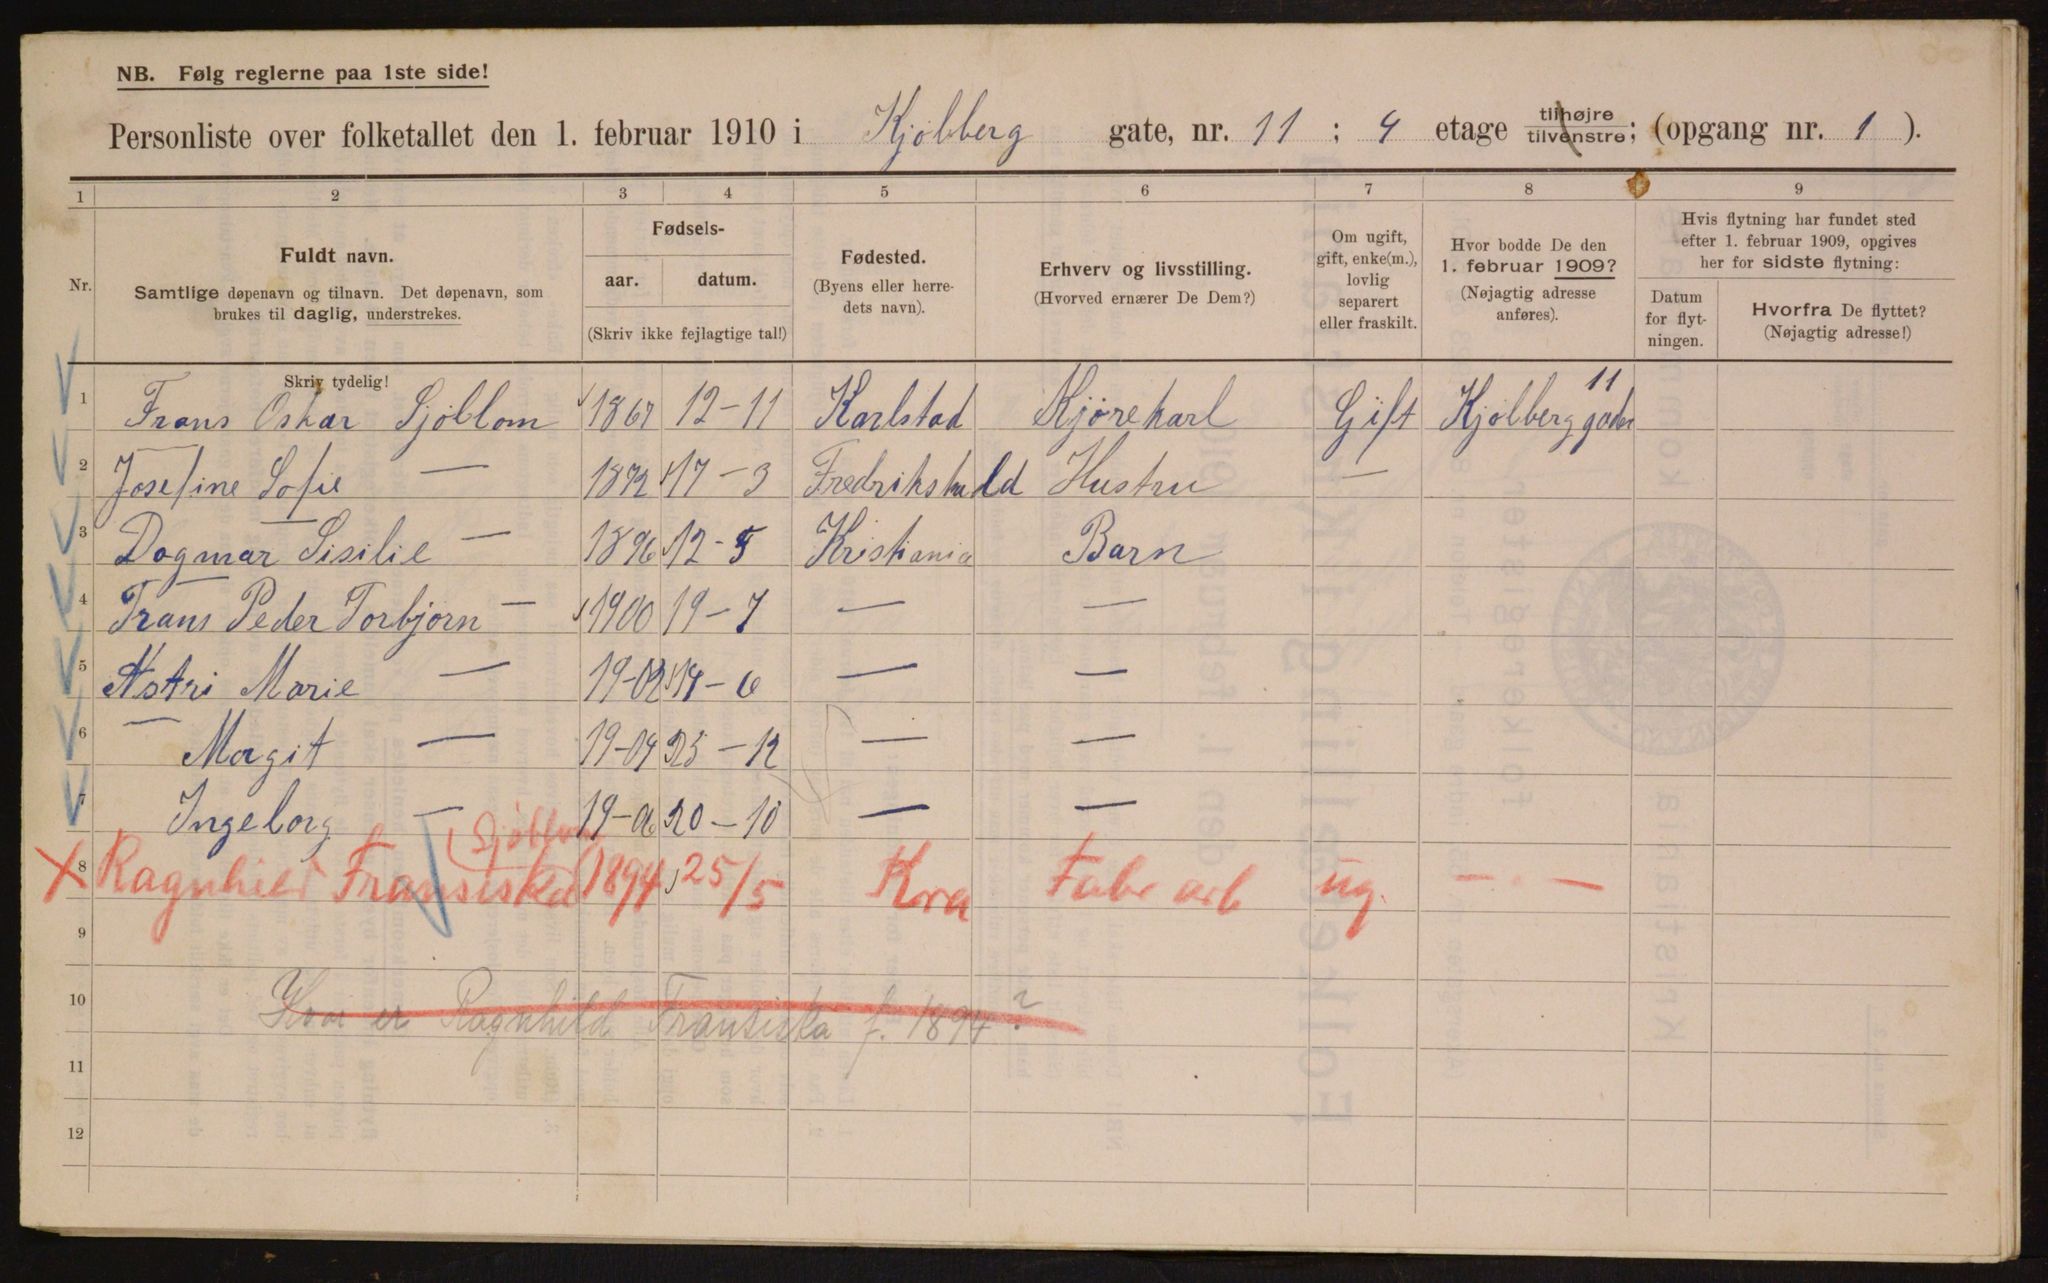 NB. Følg reglerne paa 1ste side!
Personliste over folketallet den 1. februar 1910 i Kjølberg gate, nr. 11 ; 4 etage tilhøjre tilvenstre; (opgang nr. 1 ).
1 2 3 4 5 6 7 8 9
Nr.
Fuldt navn.
Samtlige døpenavn og tilnavn. Det døpenavn, som
brukes til daglig, understrekes.
Fødsels-
aar. datum.
(Skriv ikke fejlagtige tal!)
Fødested.
(Byens eller herre-
dets navn).
Erhverv og livsstilling.
(Hvorved ernærer De Dem?)
Om ugift,
gift, enke(m.),
lovlig
separert
eller fraskilt.
Hvor bodde De den
1. februar 1909?
(Nøjagtig adresse
anføres).
Hvis flytning har fundet sted
efter 1. februar 1909, opgives
her for sidste flytning:
Datum
for flyt-
ningen.
Hvorfra De flyttet?
(Nøjagtig adresse!)
Skriv tydelig!
1 Frans Oskar Sjöblom 1867 12-11 Karlstad Kjørekarl Gift Kjølberggaden 11
2 Josefine Sofie — 1872 17-3 Fredrikshald Hustru —
3 Dagmar Sisilie — 1896 12-5 Kristiania Barn
4 Frans Peder Torbjørn — 1900 19-7 — —
5 Astri Marie — 19-02 14-6 — —
6 Margit — 19-04 25-12 — —
7 Ingeborg — 19-06 20-10 — —
Sjöblom
8 Ragnhild Fransiska 1894 25/5 Kra Fabr arb ug. — - —
9
10 Hvor er Ragnhild Fransiska f. 1894?
11
12